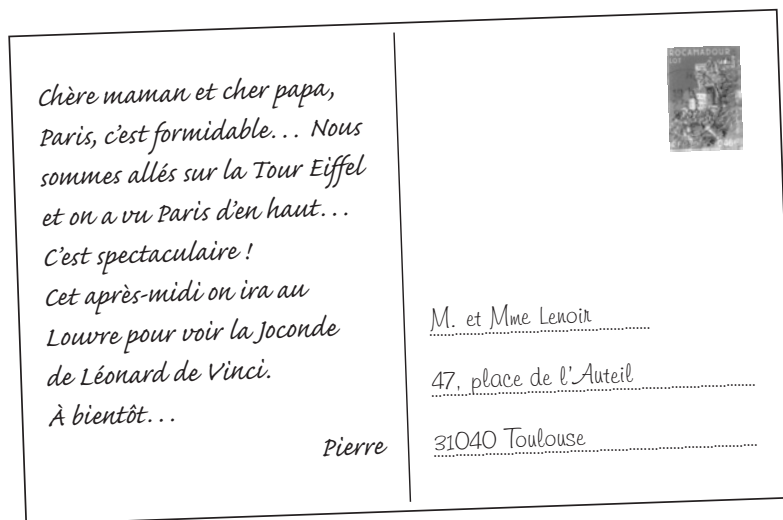 Chère maman et cher papa,
Paris, c'est formidable... Nous
sommes allés sur la Tour Eiffel
et on a vu Paris d'en haut...
C'est spectaculaire !
Cet après-midi on ira au
Louvre pour voir la Joconde
de Léonard de Vinci.
À bientôt...
Pierre
ROCAMADOUR
LOT
M. et Mme Lenoir
47, place de l'Auteil
31040 Toulouse